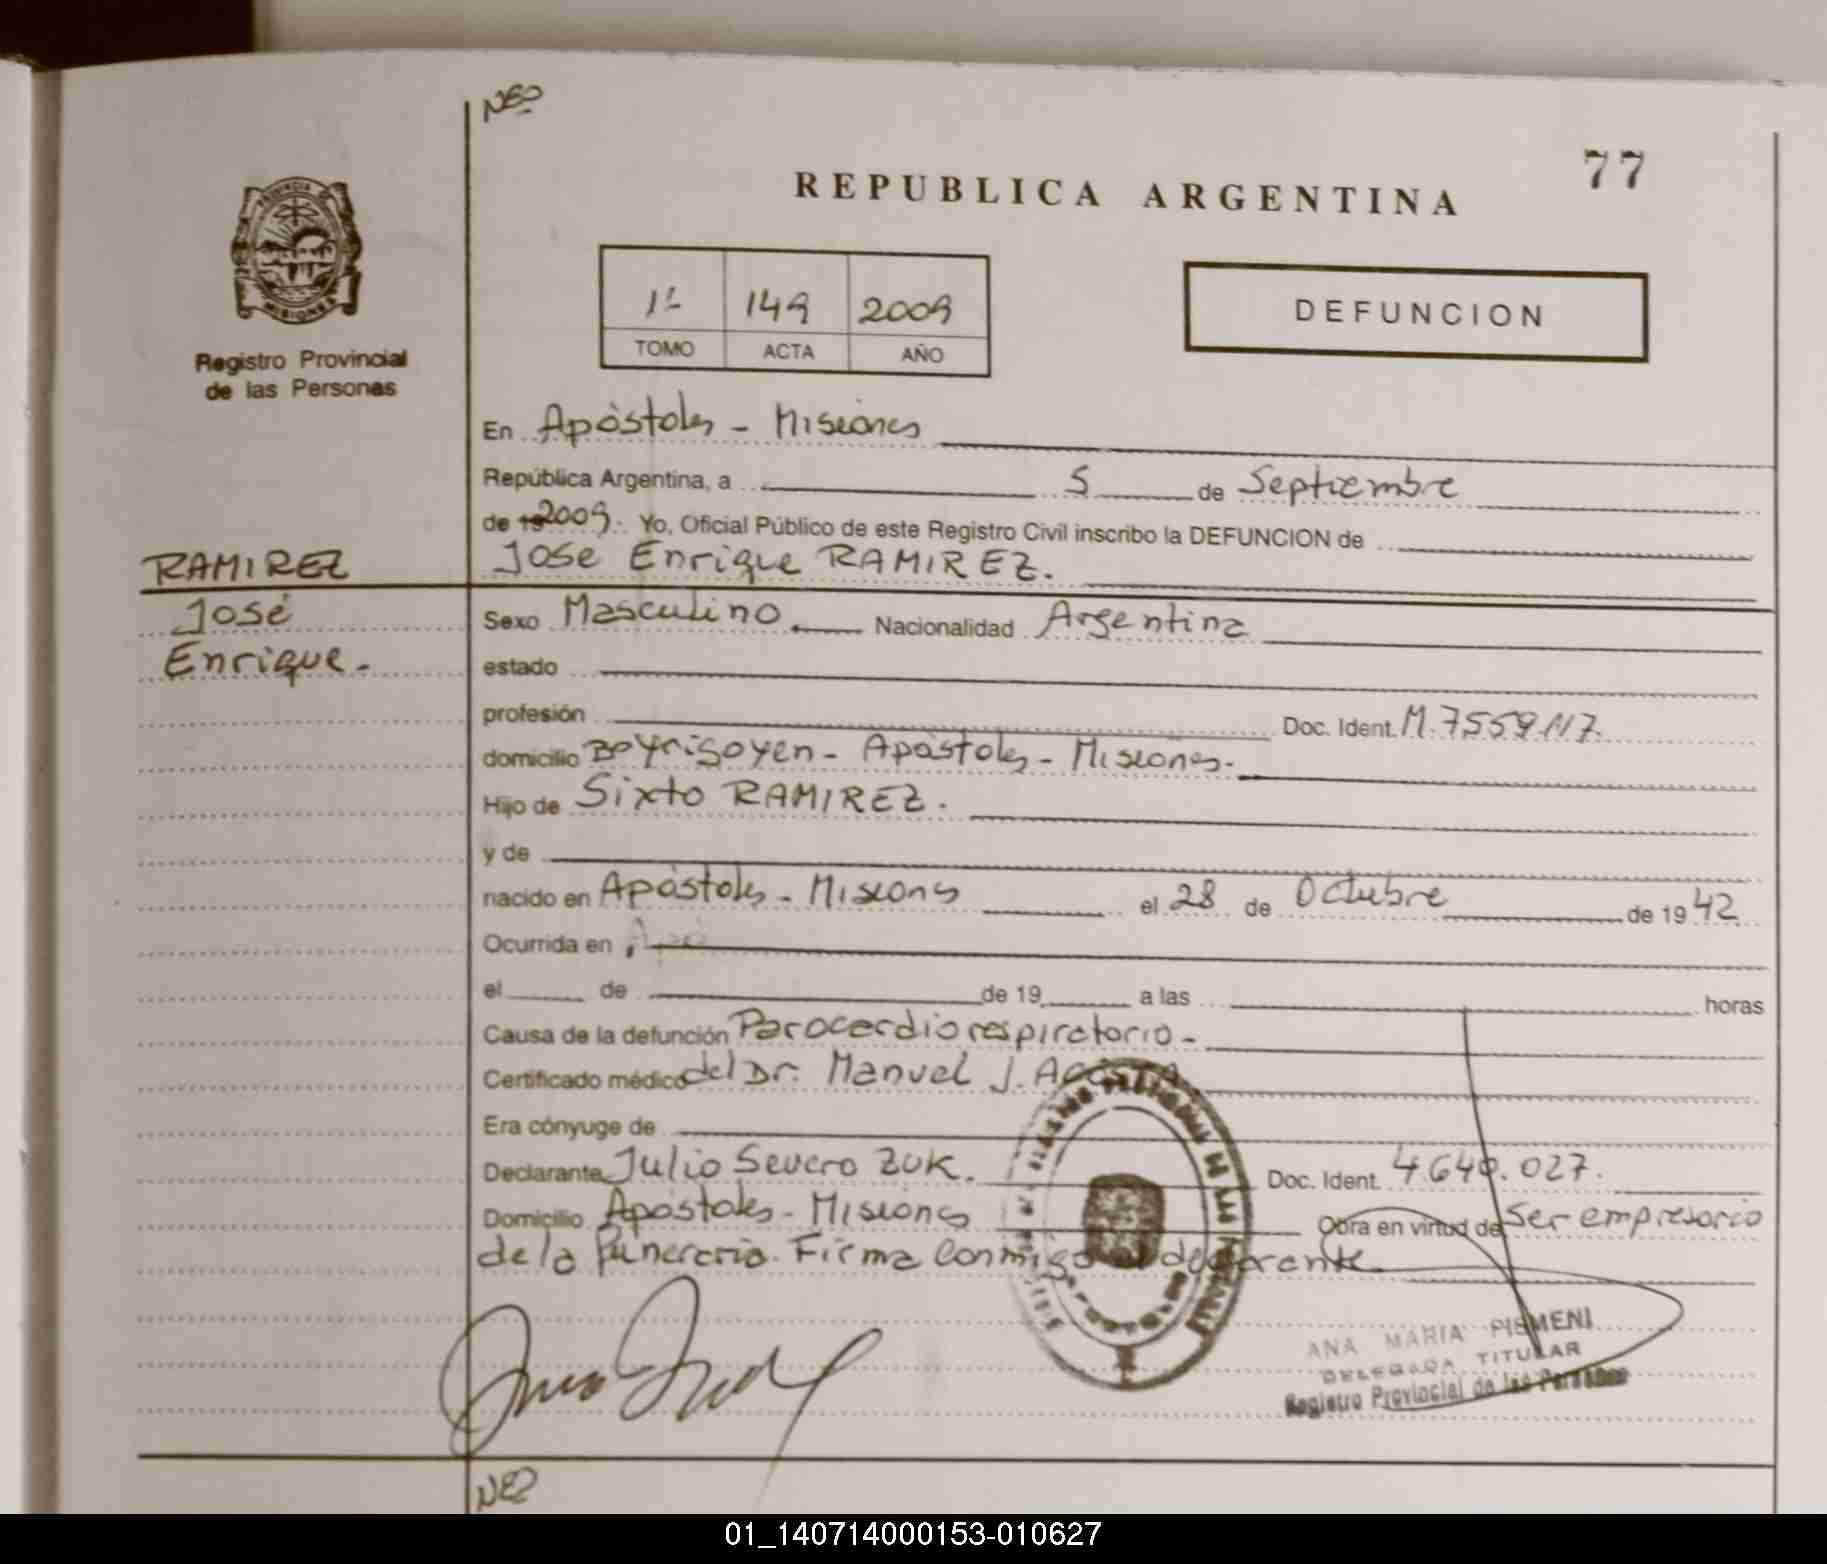 NEO
77
REPUBLICA ARGENTINA
PROVINCIA DE
MISIONES
Registro Provincial
de las Personas
1º 149 2009
TOMO ACTA AÑO
DEFUNCION
En Apóstoles - Misiones
República Argentina, a 5 de Septiembre
de 19 2009. Yo, Oficial Público de este Registro Civil inscribo la DEFUNCION de
RAMIREZ
José Enrique RAMIREZ.
José
Sexo Masculino Nacionalidad Argentina
Enrique.-
estado
profesión Doc. Ident. M. 7559117.
domicilio Bº Yrigoyen - Apóstoles - Misiones.
Hijo de Sixto RAMIREZ.
y de
nacido en Apóstoles - Misiones el 28 de Octubre de 1942
Ocurrida en
el de de 19 a las horas
Causa de la defunción Parocardiorespiratorio -
Certificado médico del Dr. Manuel J. ACOSTA
Era cónyuge de
Declarante Julio Severo ZUK. Doc. Ident. 4.640.027.
Domicilio Apóstoles - Misiones Obra en virtud de ser empresario
de la funeraria. Firma conmigo el declarante
ANA MARIA PISMENI
DELEGADA TITULAR
Registro Provincial de las Personas
01_140714000153-010627